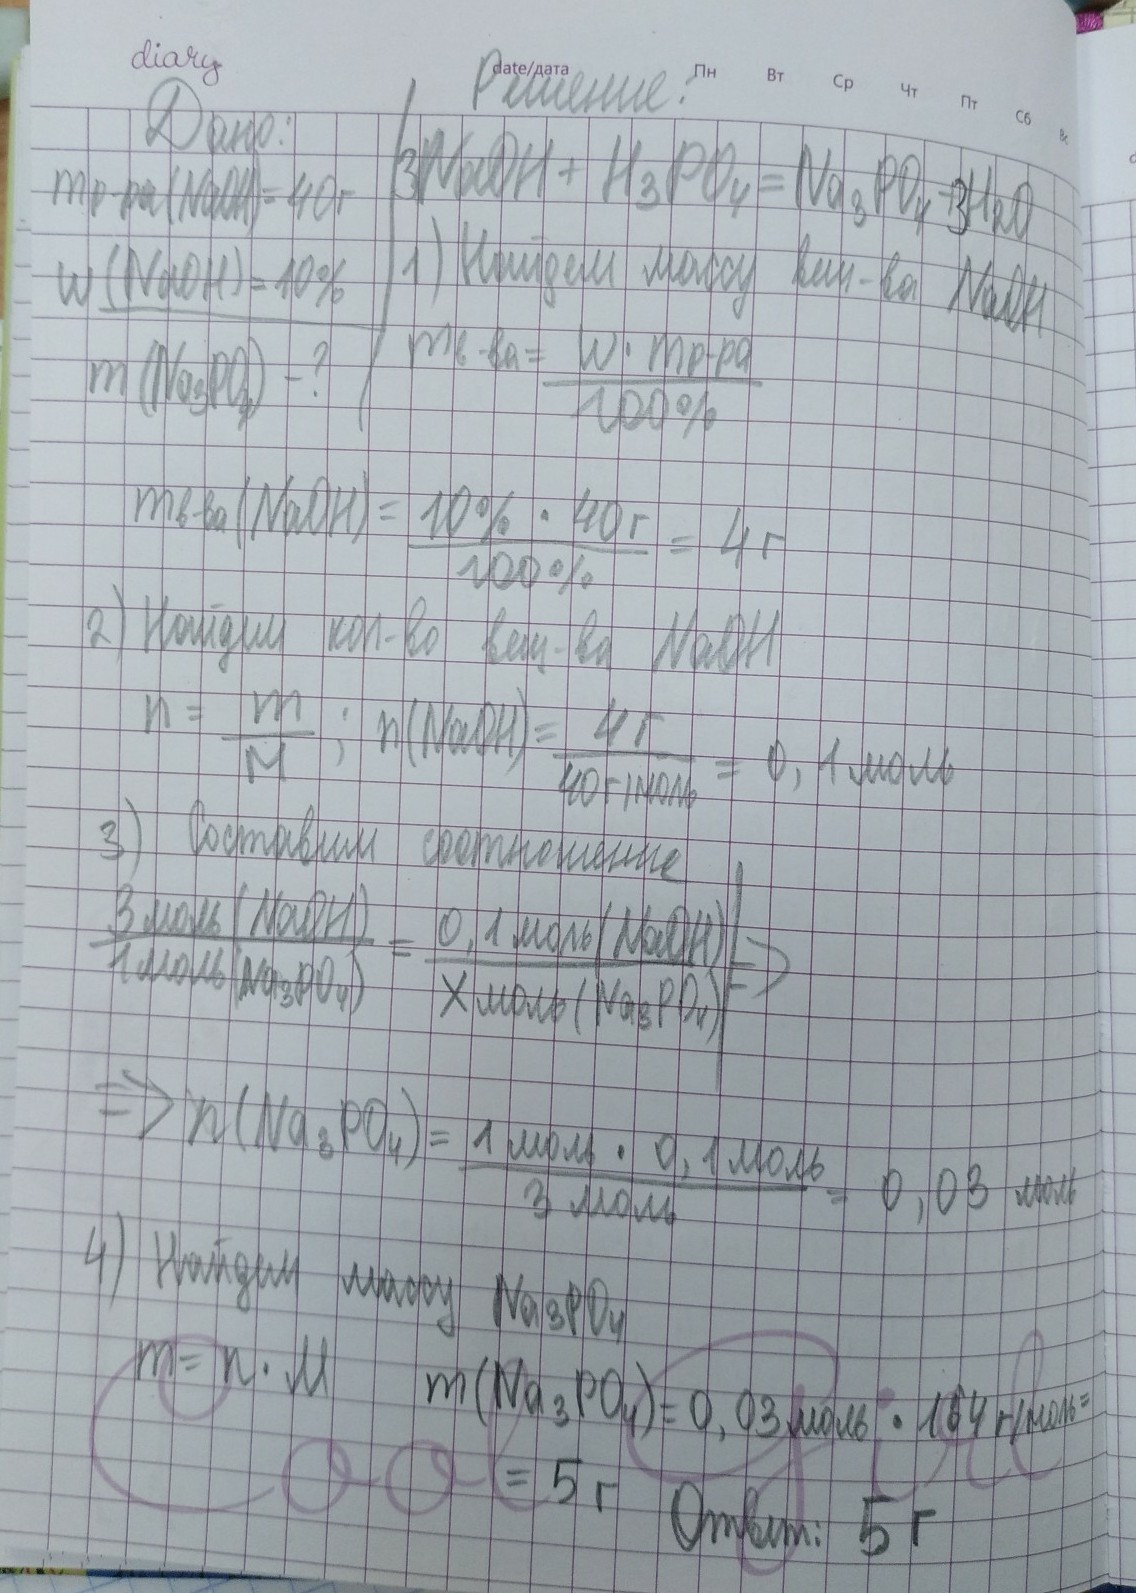 diary
date/дата Пн Вт Ср Чт Пт Сб Вс
Дано:
mр-ра(NaOH)=40г
w(NaOH)=10%
m(Na₃PO₄) -?
Решение:
3NaOH + H₃PO₄ = Na₃PO₄+3H₂O
1) Найдем массу вещ-ва NaOH
mв-ва = w · mр-ра / 100%
mв-ва(NaOH) = 10% · 40г / 100% = 4г
2) Найдем кол-во вещ-ва NaOH
n = m / M ; n(NaOH) = 4г / 40г/моль = 0,1моль
3) Составим соотношение
3моль(NaOH) / 1моль(Na₃PO₄) = 0,1моль(NaOH) / Xмоль(Na₃PO₄) | =>
=> n(Na₃PO₄) = 1моль · 0,1моль / 3моль = 0,03 моль
4) Найдем массу Na₃PO₄
m = n · M m(Na₃PO₄)=0,03моль · 164г/моль=
= 5г Ответ: 5г
Cool Girl